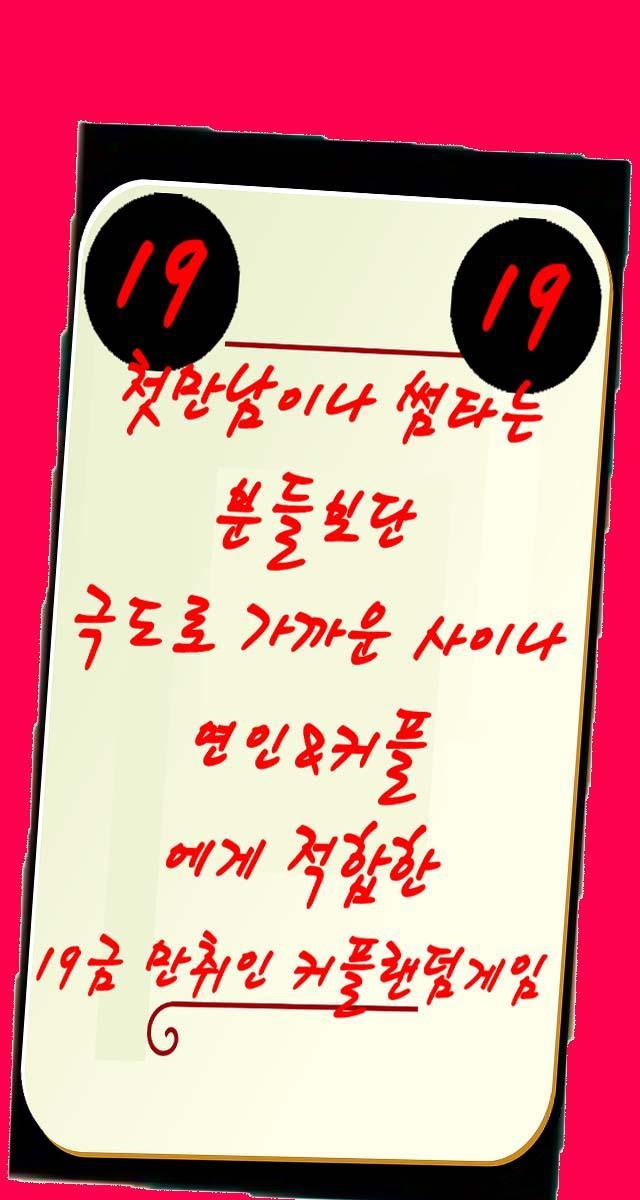 19 19
첫만남이나 썸타는
분들보단
극도로 가까운 사이나
연인&커플
에게 적합한
19금 만취인 커플랜덤게임